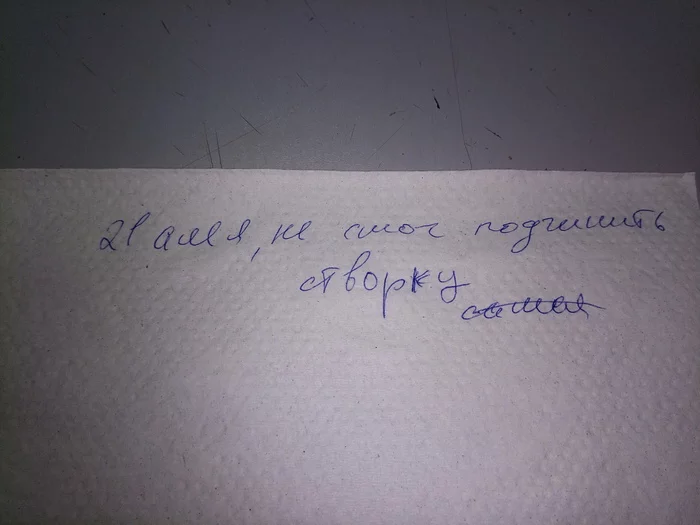 не смог подчинить
створку